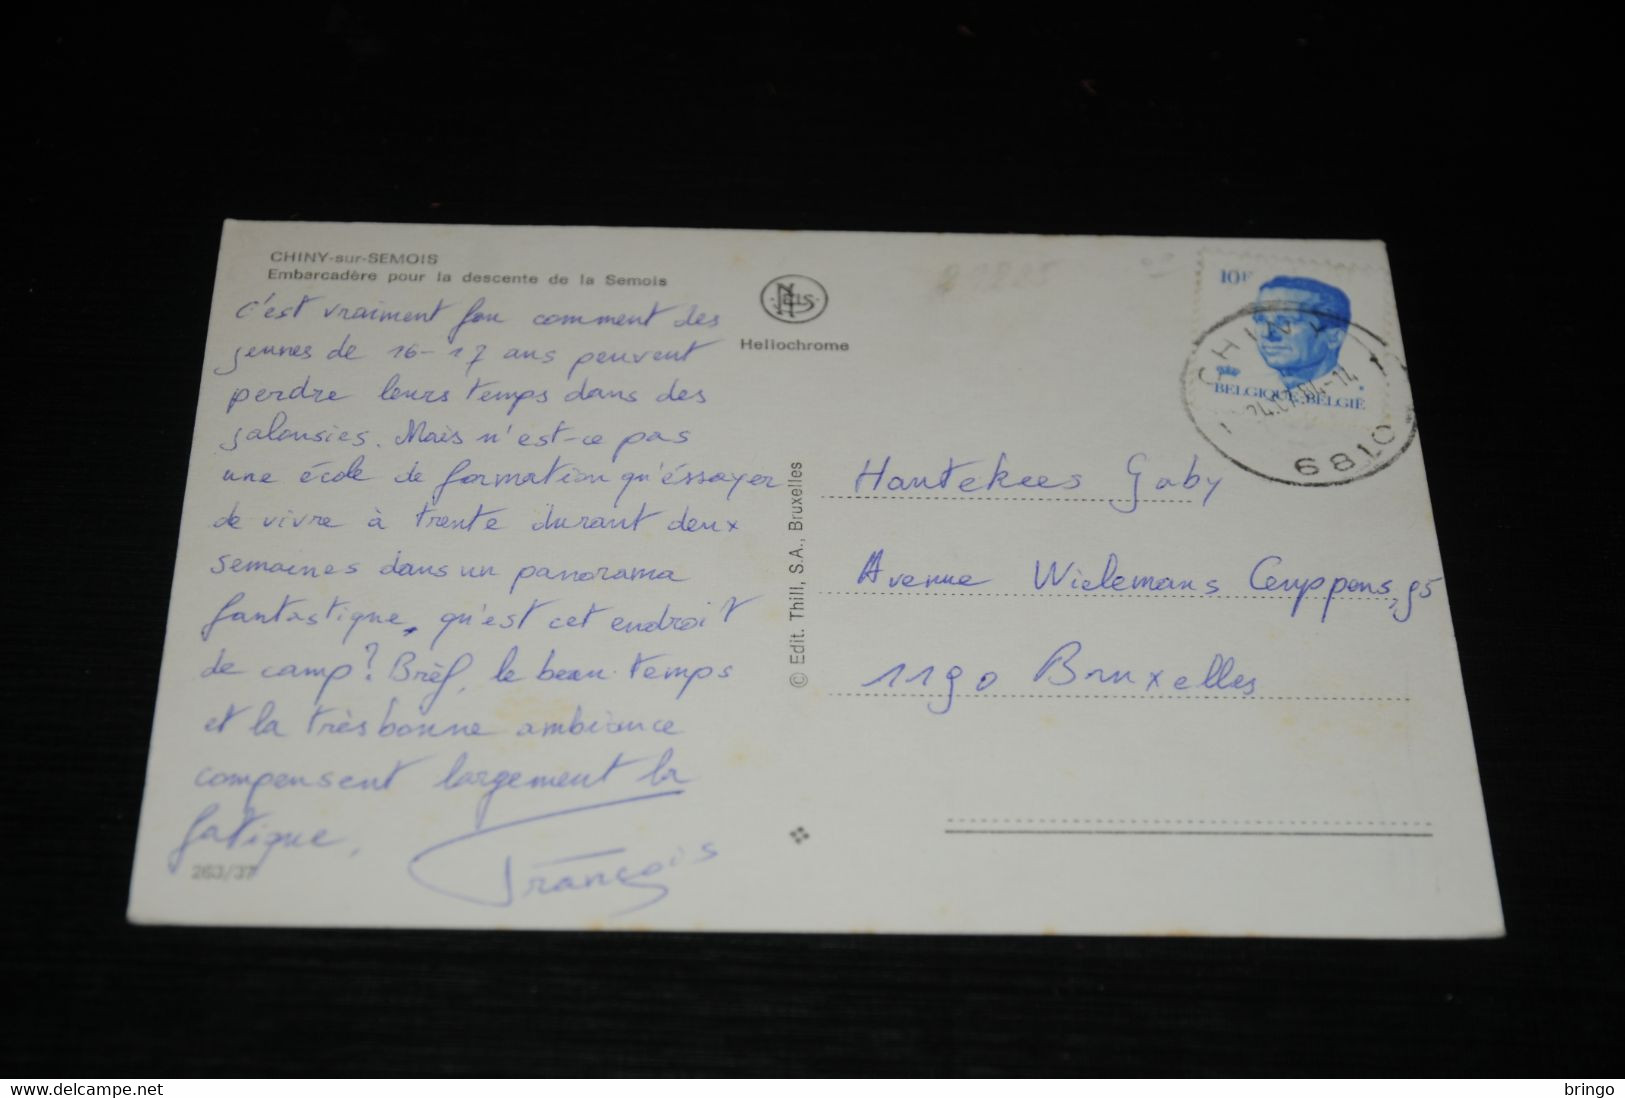 CHINY-sur-SEMOIS
Embarcadère pour la descente de la Semois
c'est vraiment fou comment des
jeunes de 16-17 ans peuvent
perdre leurs temps dans des
jalousies. Mais n'est-ce pas
une école de formation qu'éssayer
de vivre à trente durant deux
semaines dans un panorama
fantastique, qu'est cet endroit
de camp? Brèf, le beau temps
et la très bonne ambiance
compensent largement la
fatigue.
François
263/37
NELS
Heliochrome
© Edit. Thill, S.A., Bruxelles
10F
BELGIQUE·BELGIË
CHINY
6810
Hautekees Gaby
Avenue Wielemans Ceuppens, 95
1190 Bruxelles
delcampe.net
bringo